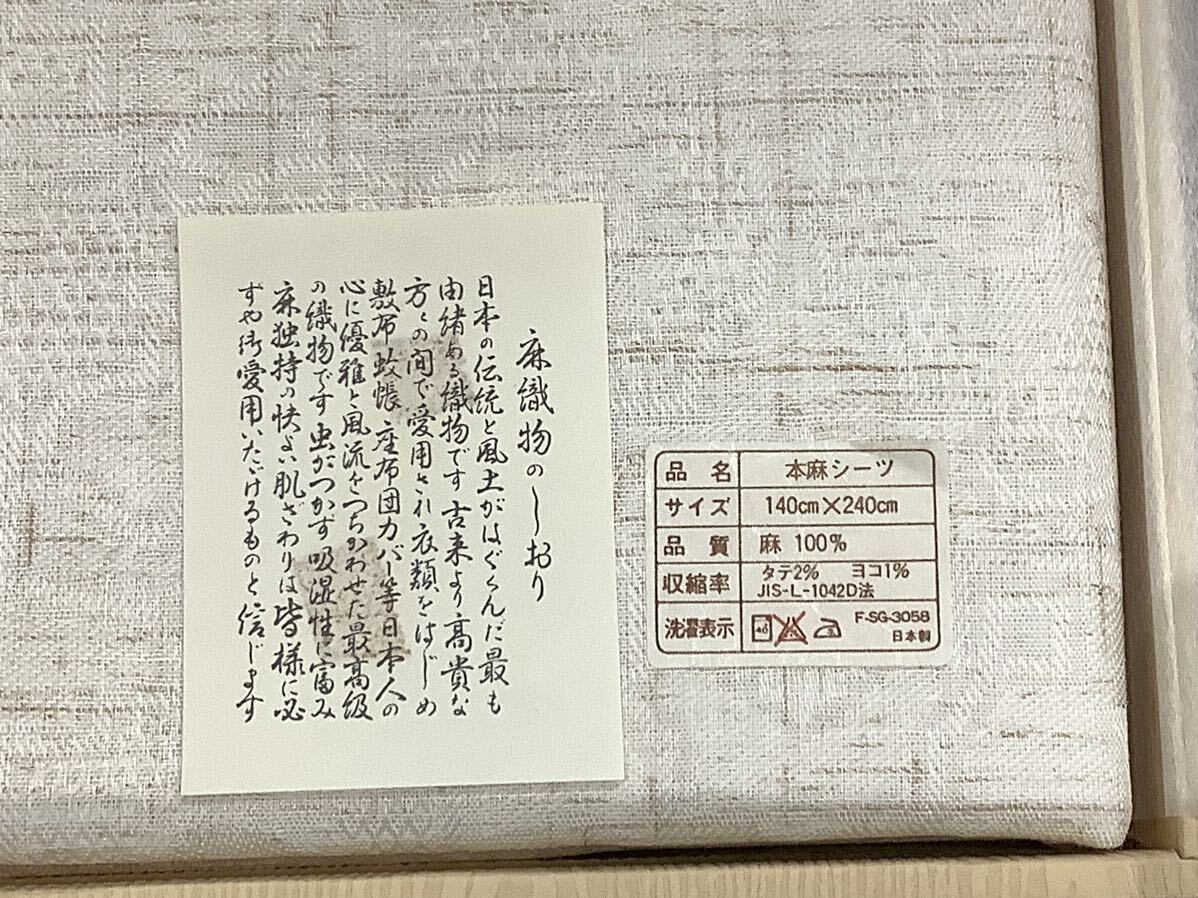 麻織物のしおり
日本の伝統と風土がはぐくんだ最も
由緒ある織物です古来より高貴な
方々の間で愛用され衣類をはじめ
敷布蚊帳座布団カバー等日本人の
心に優雅と風流をつちかわせた最高級
の織物です虫がつかず吸湿性に富み
麻独特の快よい肌ざわりは皆様に必
ずや御愛用いたゞけるものと信じます
品名 本麻シーツ
サイズ 140cm×240cm
品質 麻 100%
収縮率 タテ2% ヨコ1%
JIS-L-1042D法
洗濯表示 40 F-SG-3058
日本製